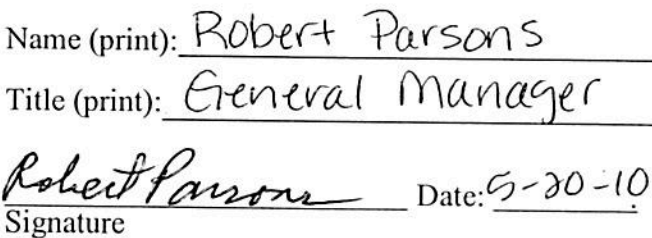 Name (print): Robert Parsons
Title (print): General Manager
Robert Parsons Date: 5-20-10
Signature